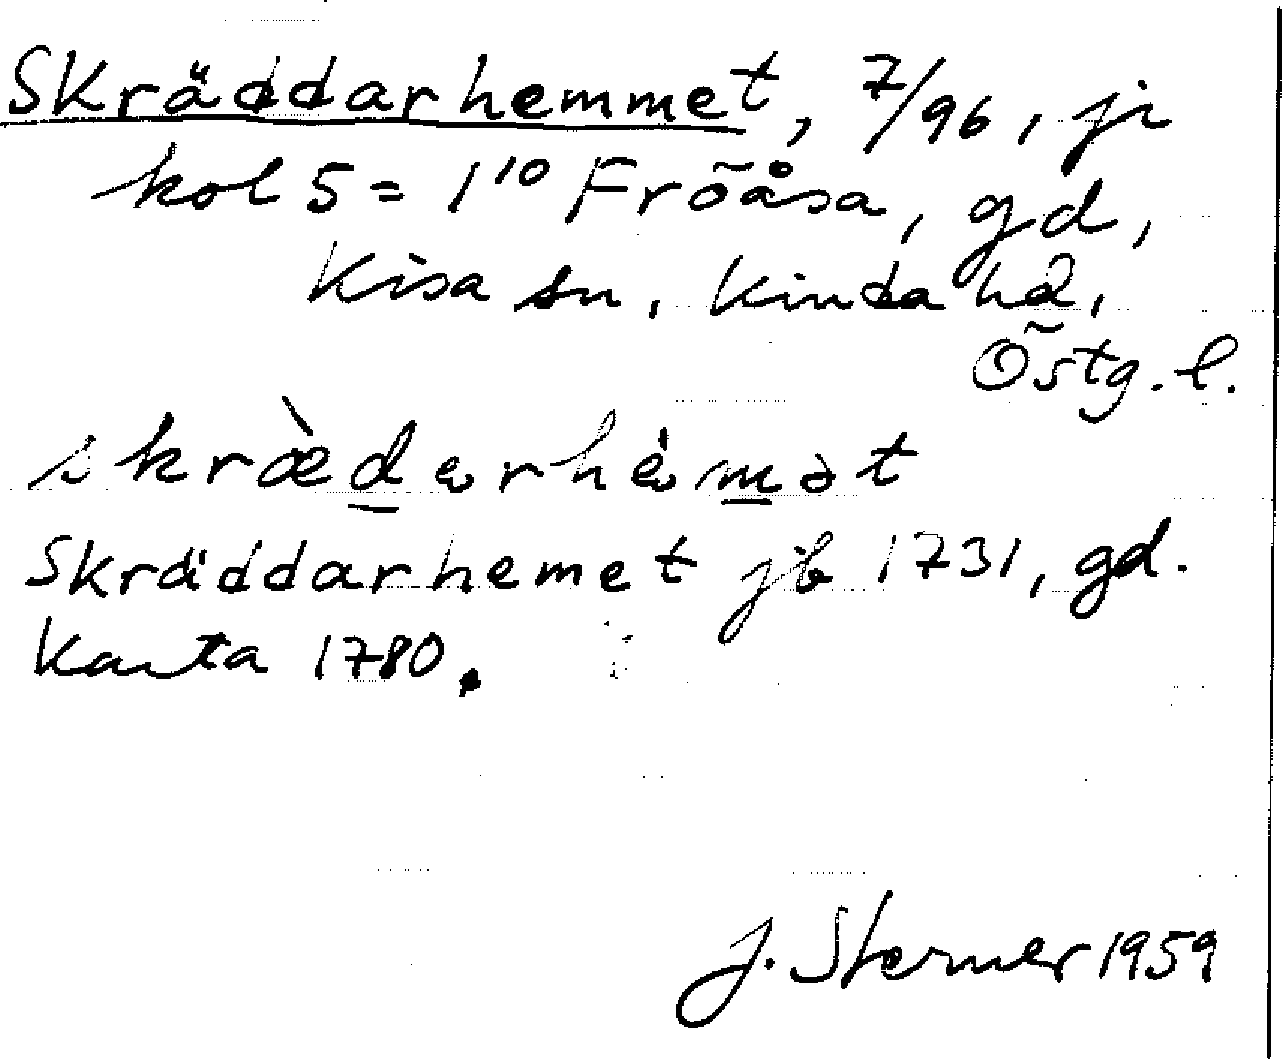 Skräddarhemmet, 7/96, jr
kol 5 = 1¹⁰ Fröåsa, gd,
Kisa sn, Kinda hd,
Östg. l.
skræ̀darhèmət
Skräddarhemet jb 1731, gd.
Karta 1780.
J. Sterner 1959